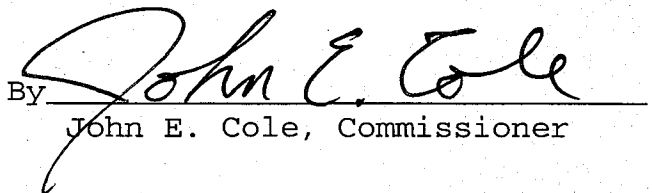 By John E. Cole
John E. Cole, Commissioner